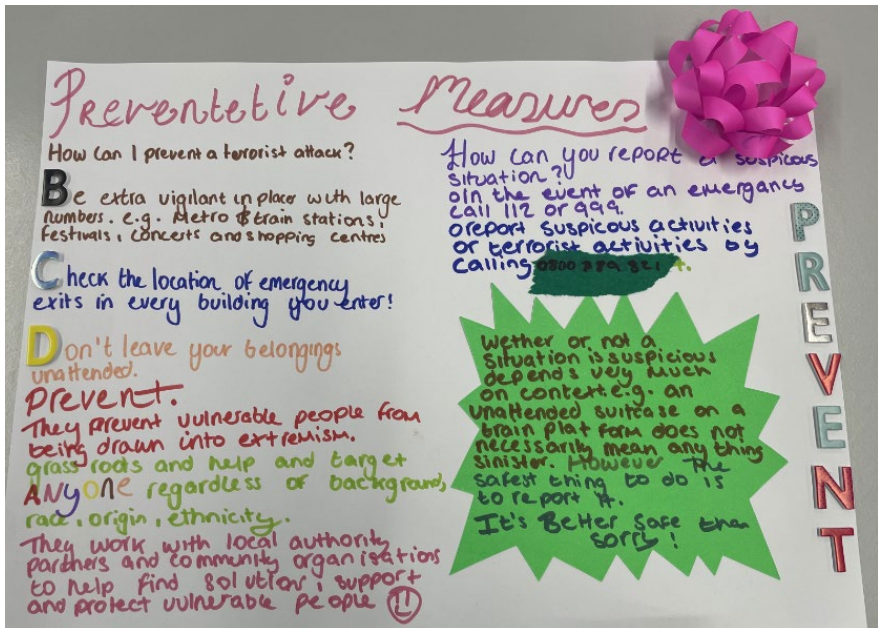 Preventetive Measures
How can I prevent a terorist attack?
Be extra vigilant in places with large
numbers. e.g. Metro & train stations,
festivals, concerts and shopping centres
Check the location of emergency
exits in every building you enter!
Don't leave your belongings
unattended.
Prevent.
They prevent vulnerable people from
being drawn into extremism.
grass roots and help and target
ANyone regardless of background,
race, origin, ethnicity.
They work with local authority
parthers and community organisations
to help find solutions, support
and protect vulnerable people
How can you report a suspicous
situation?
In the event of an emergancy
call 112 or 999.
report suspicous activities
or terrorist activities by
calling
Wether or not a
situation is suspicious
depends very much
on context e.g. an
unattended suitcase on a
brain plat form does not
necessarily mean any thing
sinister. However the
safest thing to do is
to report it.
It's Better safe than
sorry!
PREVENT